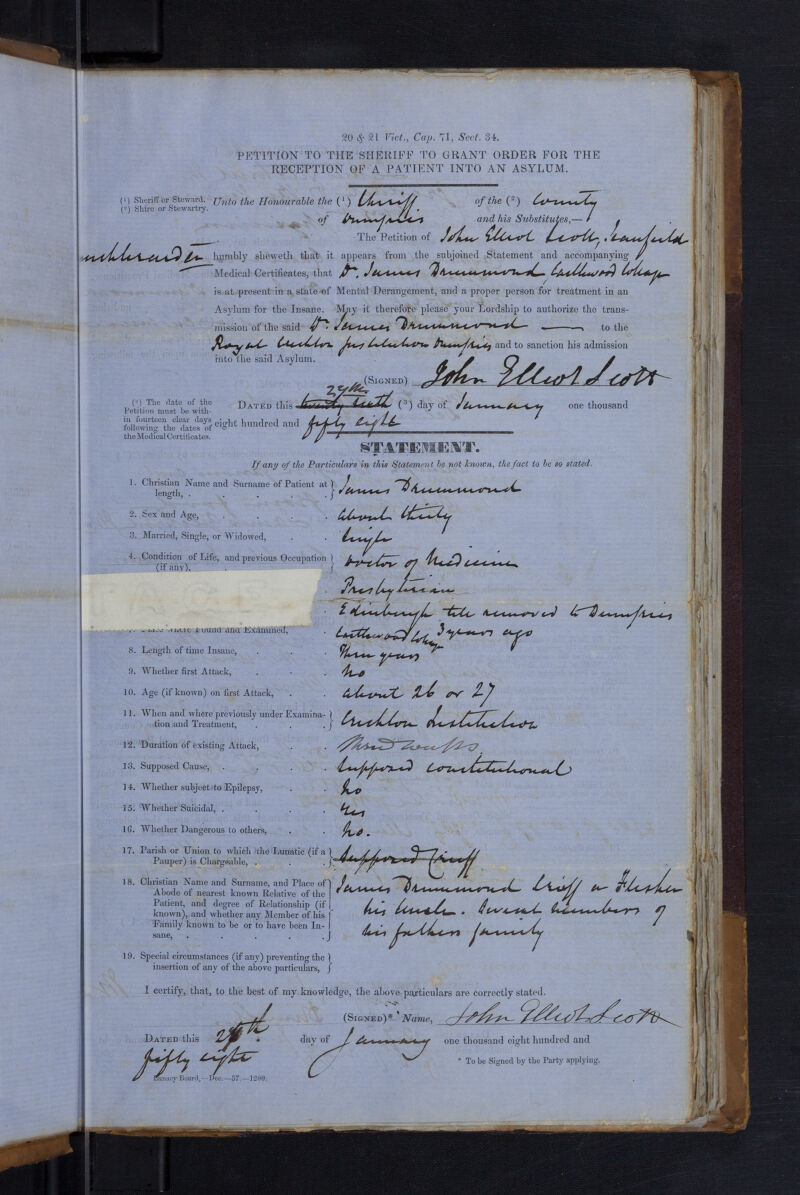 20 & 21 Vict., Cap. 71, Sect. 34.
PETITION TO THE SHERIFF TO GRANT ORDER FOR THE
RECEPTION OF A PATIENT INTO AN ASYLUM.
(1) Sheriff or Steward.
(2) Shire or Stewartry.
Unto the Honourable the (1) Sheriff of the (2) County
of Dumfries and his Substitutes,—
The Petition of John Elliot Scott,
humbly sheweth that it appears from the subjoined Statement and accompanying
Medical Certificates, that Dr. James Drummond Castlewood Cottage
is at present in a state of Mental Derangement, and a proper person for treatment in an
Asylum for the Insane. May it therefore please your Lordship to authorize the trans-
mission of the said Dr. James Drummond — to the
Royal Crichton Institution Dumfries and to sanction his admission
into the said Asylum.
(SIGNED) John Elliot Scott
(3) The date of the
Petition must be with-
in fourteen clear days
following the dates of
the Medical Certificates.
DATED this (3) day of January one thousand
eight hundred and fifty eight
STATEMENT.
If any of the Particulars in this Statement be not known, the fact to be so stated.
1. Christian Name and Surname of Patient at
length, . James Drummond
2. Sex and Age, about thirty
3. Married, Single, or Widowed, Single
4. Condition of Life, and previous Occupation
(if any), Doctor of Medicine
Presbyterian
Edinburgh till removed to Dumfries
3 years ago
Found and Examined, Castlewood Cottage
8. Length of time Insane, Three years
9. Whether first Attack, No
10. Age (if known) on first Attack, about 26 or 27
11. When and where previously under Examina-
tion and Treatment, Crichton Institution
12. Duration of existing Attack, Three weeks
13. Supposed Cause, Supposed constitutional
14. Whether subject to Epilepsy, No
15. Whether Suicidal, Yes
16. Whether Dangerous to others, No.
17. Parish or Union to which the Lunatic (if a
Pauper) is Chargeable, Supposed Crieff
18. Christian Name and Surname, and Place of
Abode of nearest known Relative of the
Patient, and degree of Relationship (if
known), and whether any Member of his
Family known to be or to have been In-
sane, James Drummond Crieff a Flesher
his Uncle. Several members of
his fathers family
19. Special circumstances (if any) preventing the
insertion of any of the above particulars,
I certify, that, to the best of my knowledge, the above particulars are correctly stated.
(SIGNED)* Name, John Elliot Scott
DATED this day of January one thousand eight hundred and
fifty eight
* To be Signed by the Party applying.
Lunacy Board,—Dec.—57.—1200.